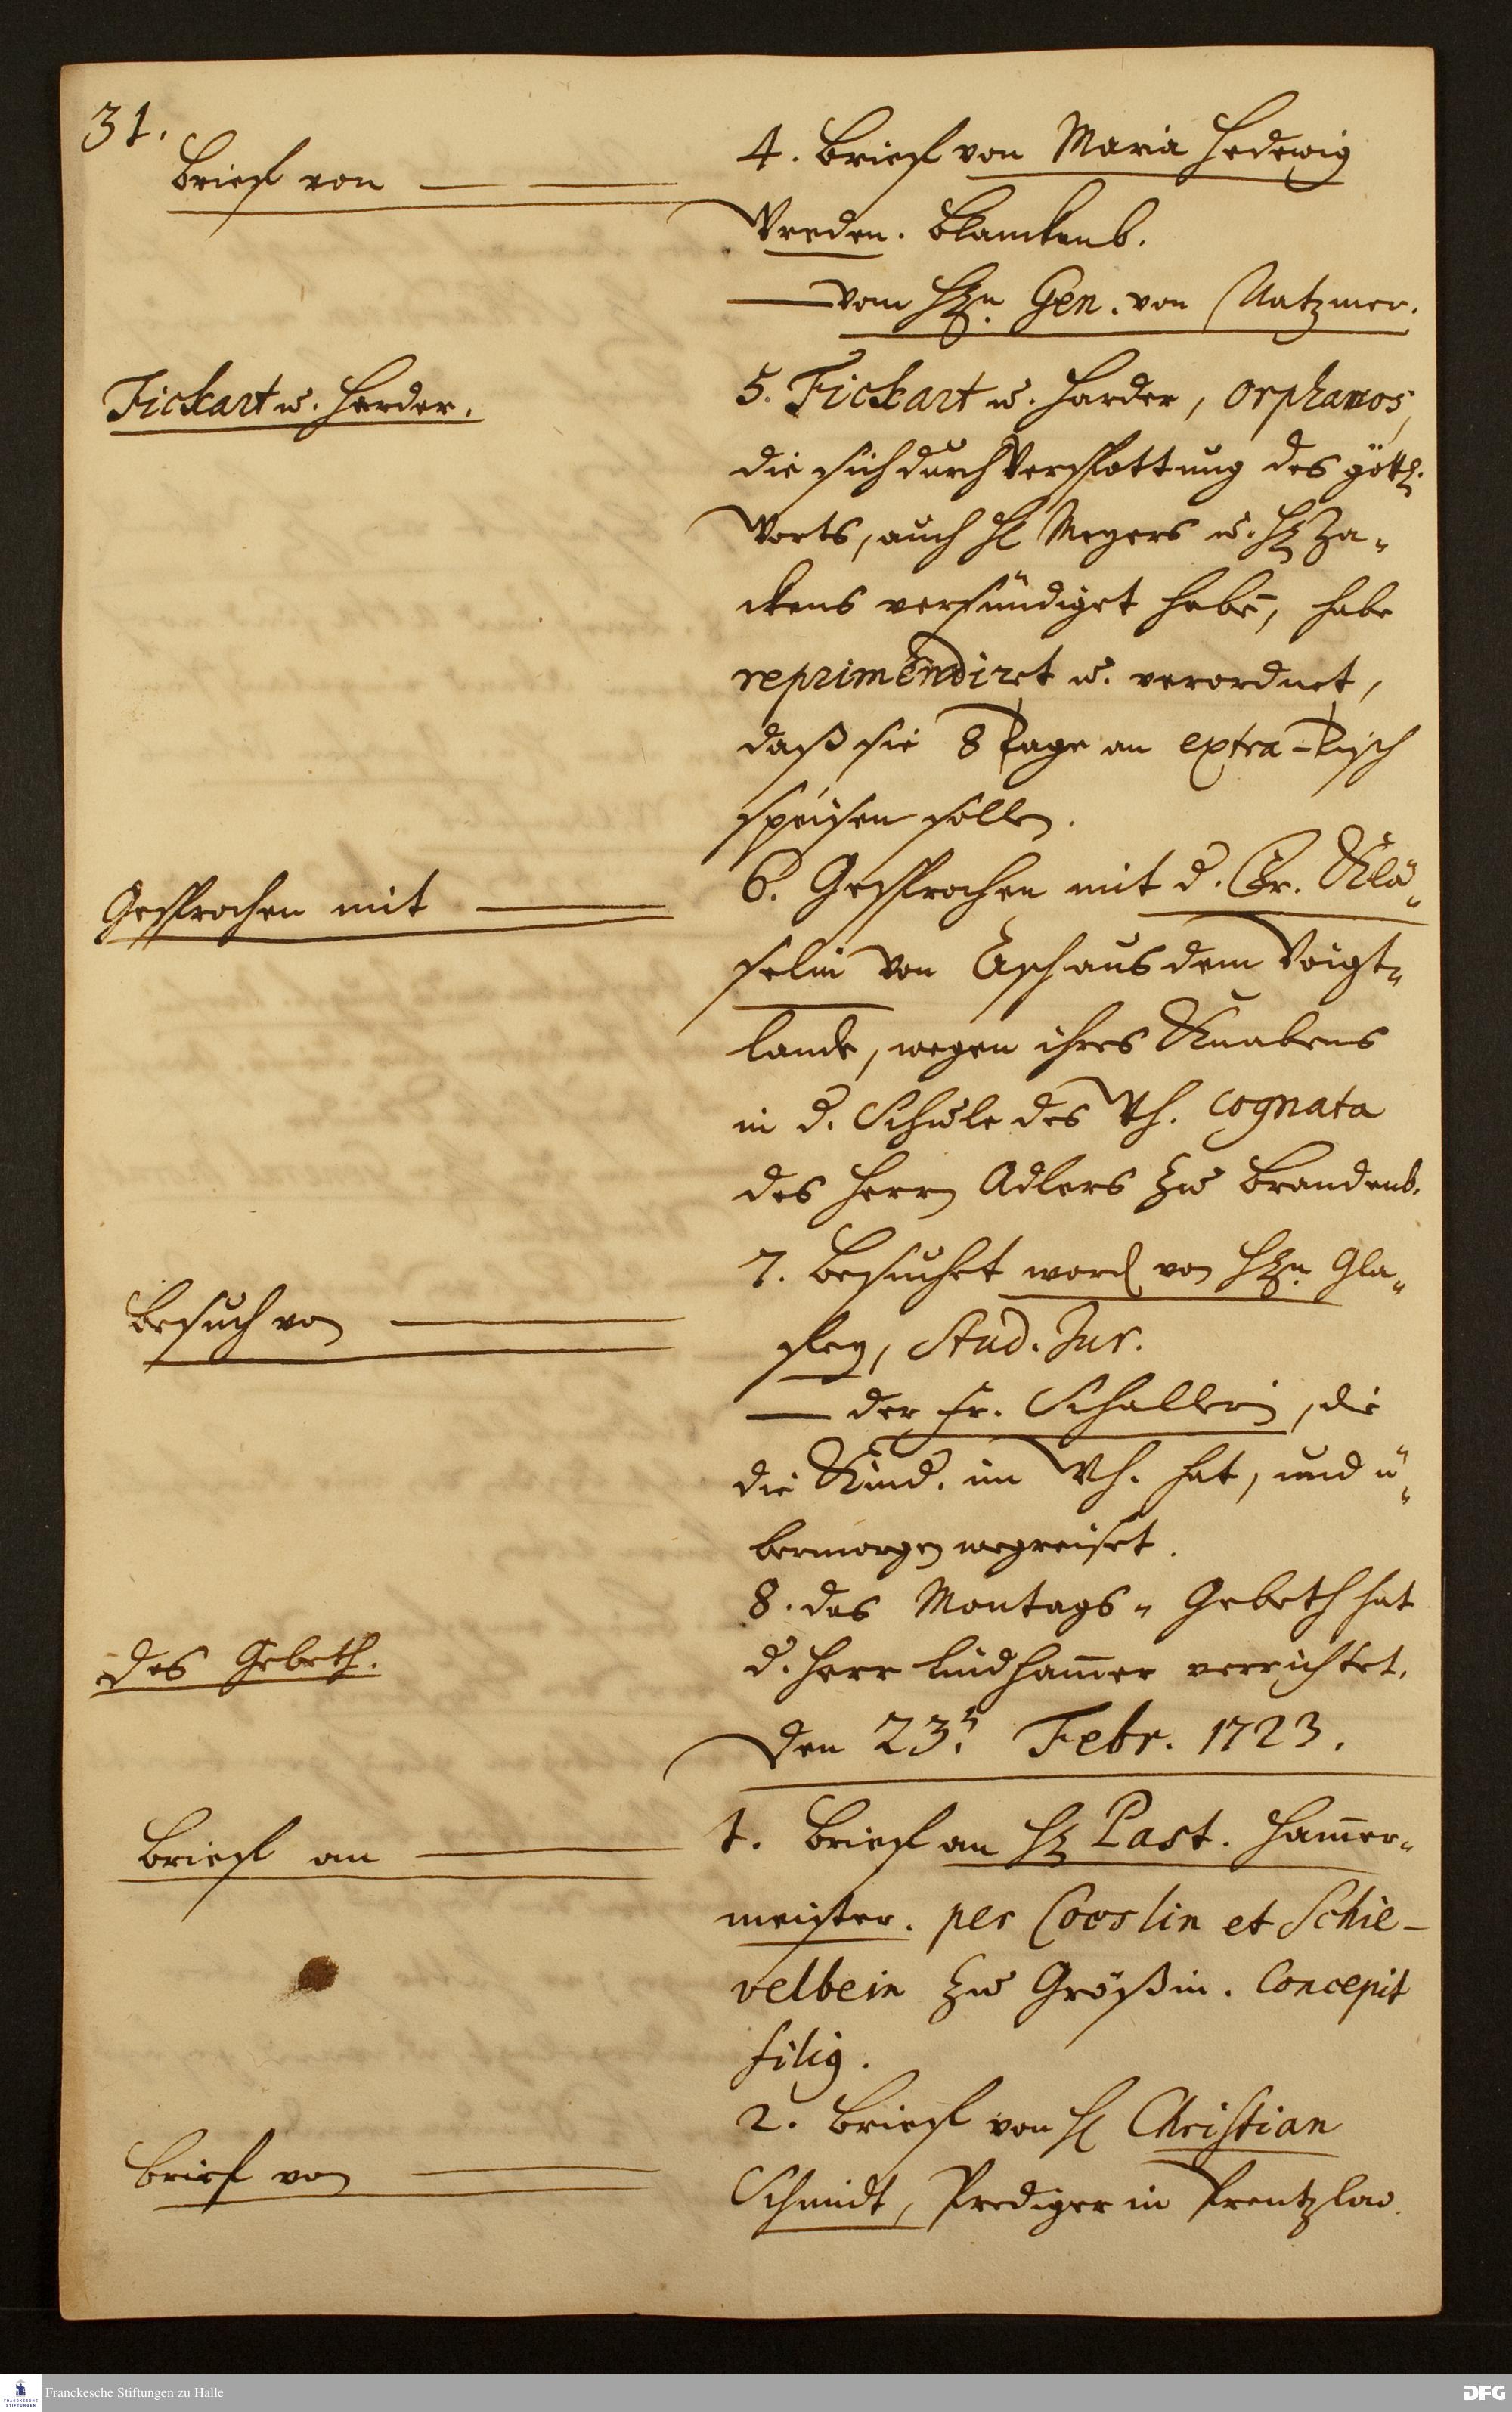 31.
Brief von
4. Brief von Maria Hedewig
Vreden. Blanckenb.
vom Hrn. Gen. von Natzmer.
Fickart u. Harder.
5. Fickart u. Harder, orphanos,
die sich durch Verspottung des göttl.
Worts, auch H. Meyers u. Hr. Za-
ckens versündiget habē, habe
reprimendiret u. verordnet,
daß sie 8 Tage an extra-Tisch
speisen sollen.
Gesprochen mit
6. Gesprochen mit d. Fr. Klä-
selin von Asch aus dem Voigt-
lande, wegen ihres Knabens
in d. Schule des Wh. cognata
des Herrn Adlers zu Brandenb.
Besuch von
7. Besuchet word von Hrn. Gla-
sey, Stud. Jur.
der Fr. Schallerin, die
die Kind. im Wh. hat, und ü-
bermorgen wegreiset.
das Gebeth.
8. das Montags-Gebeth hat
d. Herr Lindham̄er verrichtet.
Den 23. Febr. 1723.
Brief an
1. Brief an Hr. Past. Ham̄er-
meister. per Coeslin et Schie-
velbein zu Größin. Concepit
filig.
Brief von
2. Brief von H. Christian
Schmidt, Prediger in Prentzlau.
Franckesche Stiftungen zu Halle
DFG